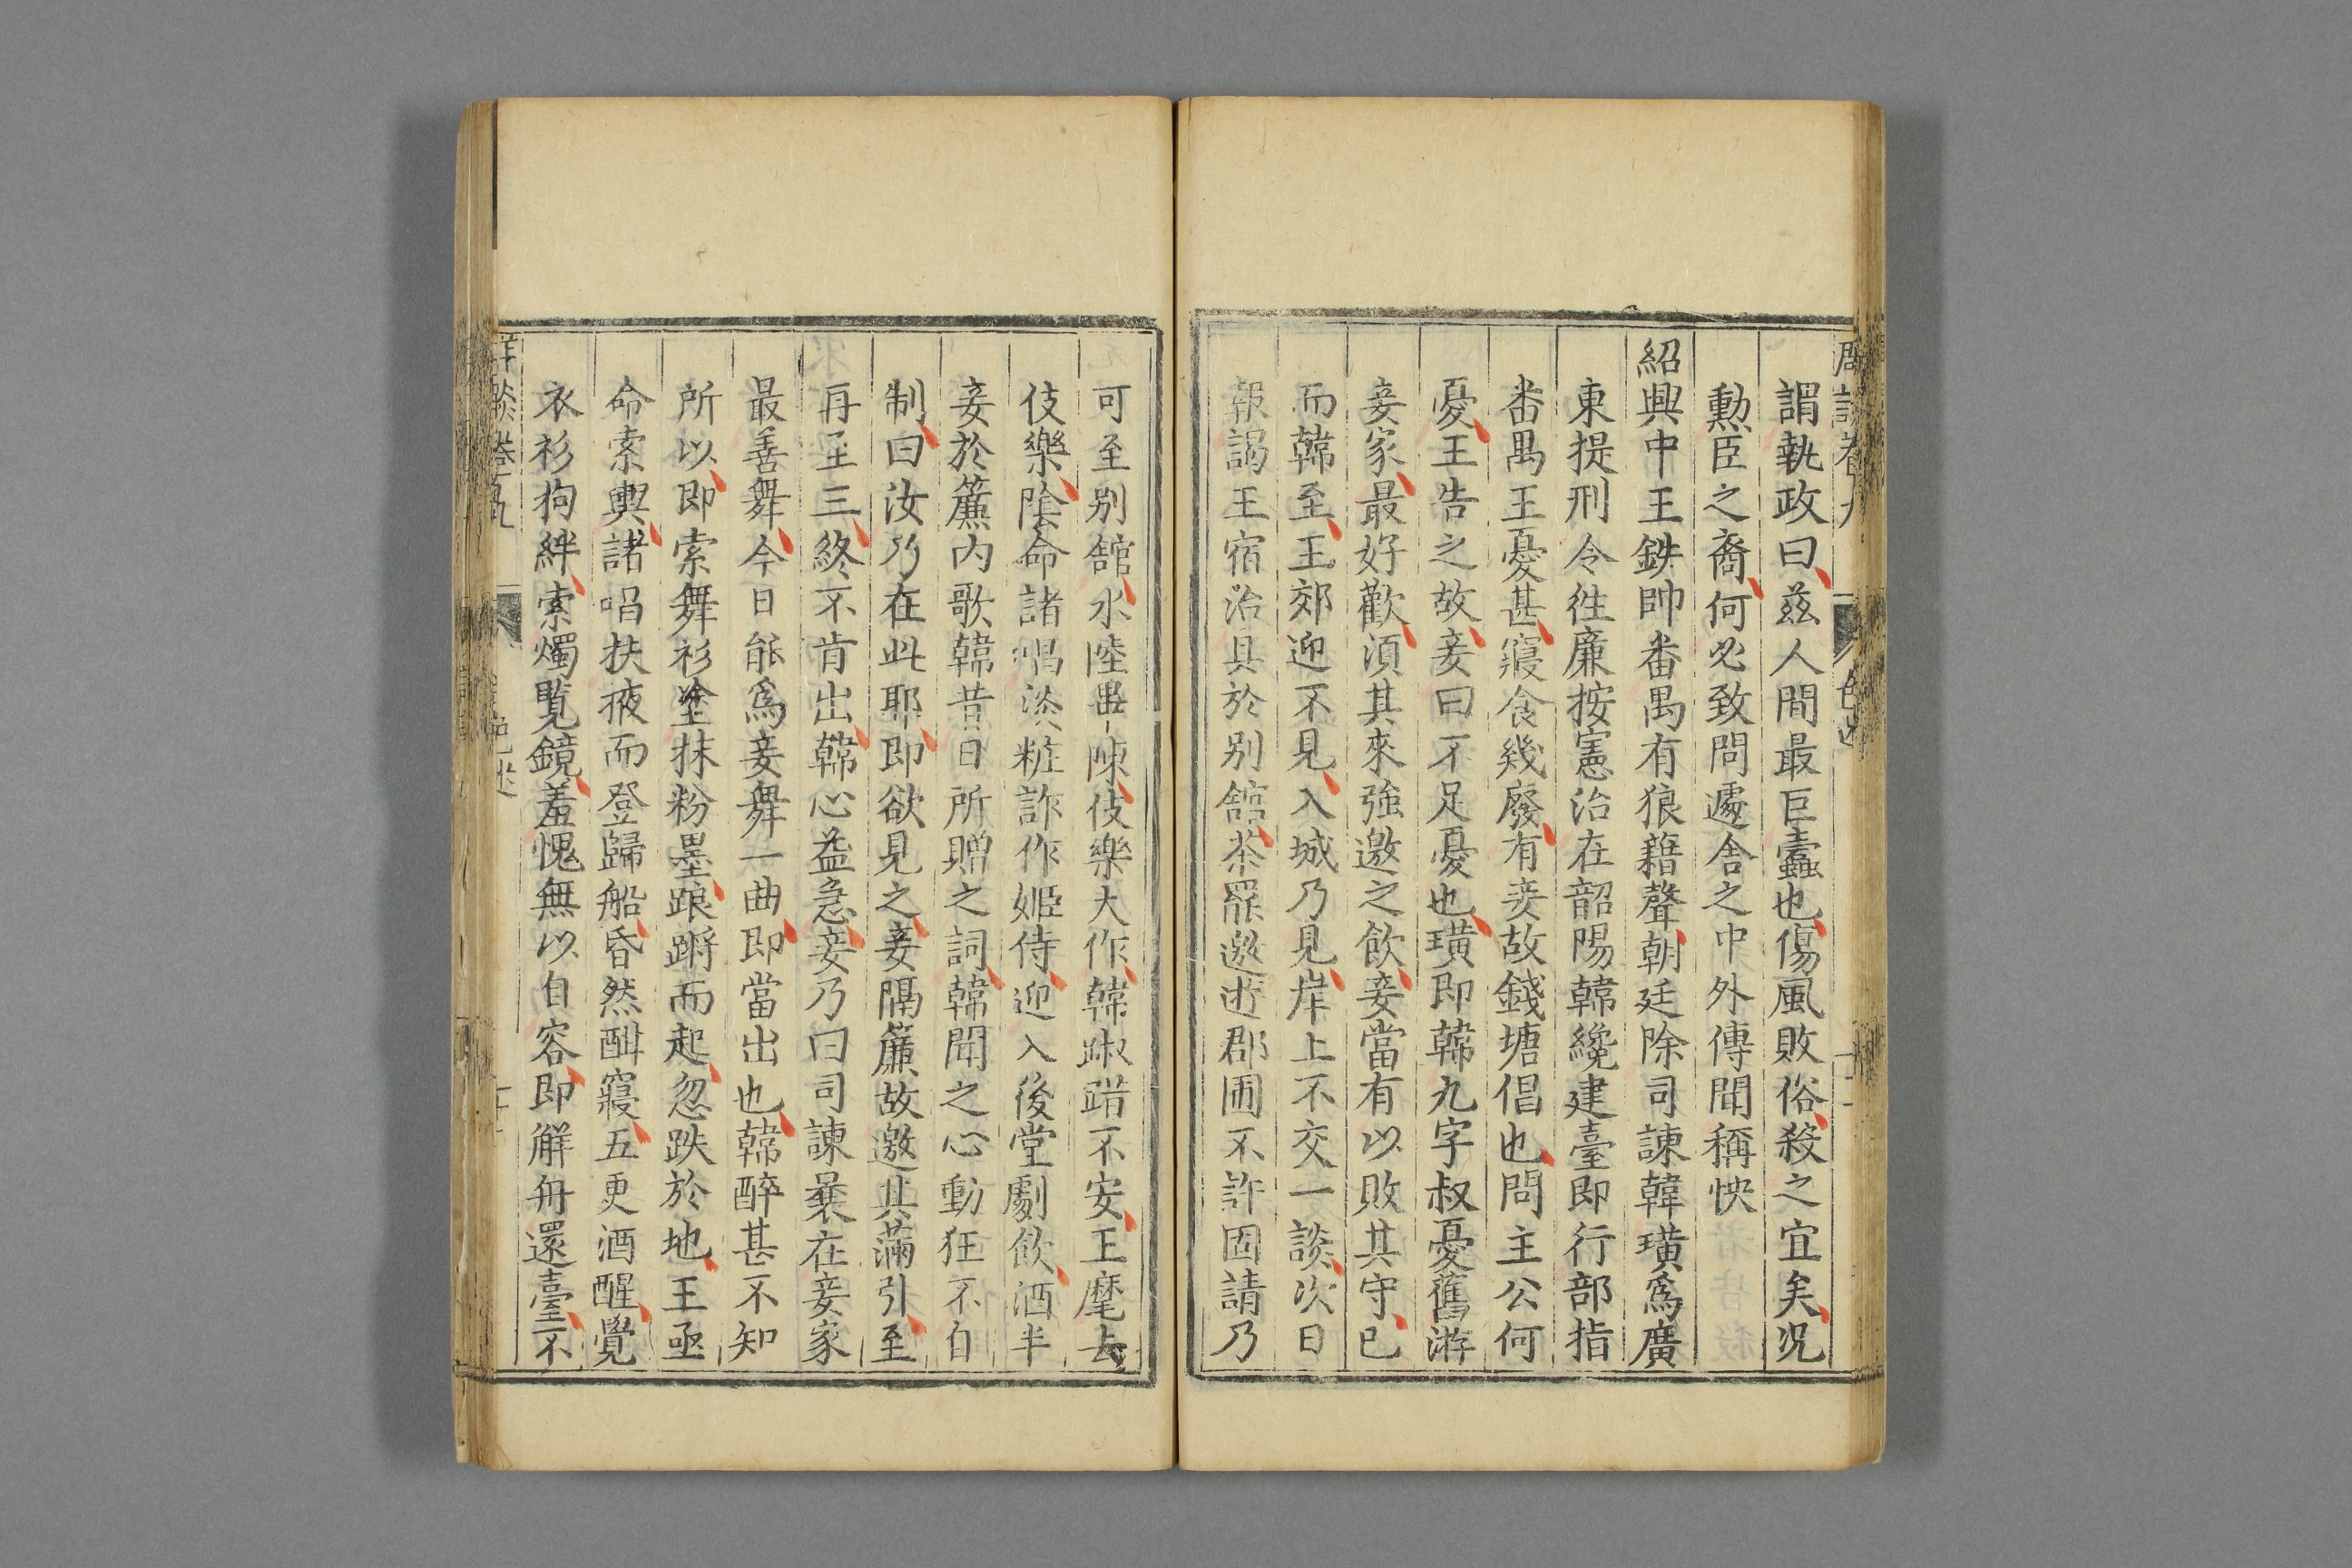 謂執政曰兹人間最巨蠹也傷風敗俗殺之宜矣况
勲臣之裔何必致問遽舍之中外傳聞稱快
紹興中王鈇帥番禺有狼藉聲朝廷除司諫韓璜爲廣
東提刑令徃廉按憲治在韶陽韓纔建臺即行部指
番禺王憂甚寢食幾廢有妾故錢塘倡也問主公何
憂王告之故妾曰不足憂也璜即韓九字叔憂舊游
妾家最好歡須其來強邀之飲妾當有以敗其守已
而韓至王郊迎不見入城乃見岸上不交一談次日
報謁王宿治具於别館茶罷邀逰郡圃不許固請乃
可至别館水陸畢陳伎樂大作韓踧踖不安王麾去
伎樂陰命諸唱淡粧詐作姬侍迎入後堂劇飲酒半
妾於簾内歌韓昔日所贈之詞韓聞之心動狂不自
制曰汝乃在此耶即欲見之妾隔簾故邀其滿引至
再至三終不肯出韓心益急妾乃曰司諫曩在妾家
最善舞今日能爲妾舞一曲即當出也韓醉甚不知
所以即索舞衫塗抹粉墨踉蹡而起忽跌於地王亟
命索輿諸唱扶掖而登歸船昏然酣寢五更酒醒覺
衣衫拘絆索燭覽鏡羞愧無以自容即解舟還臺不